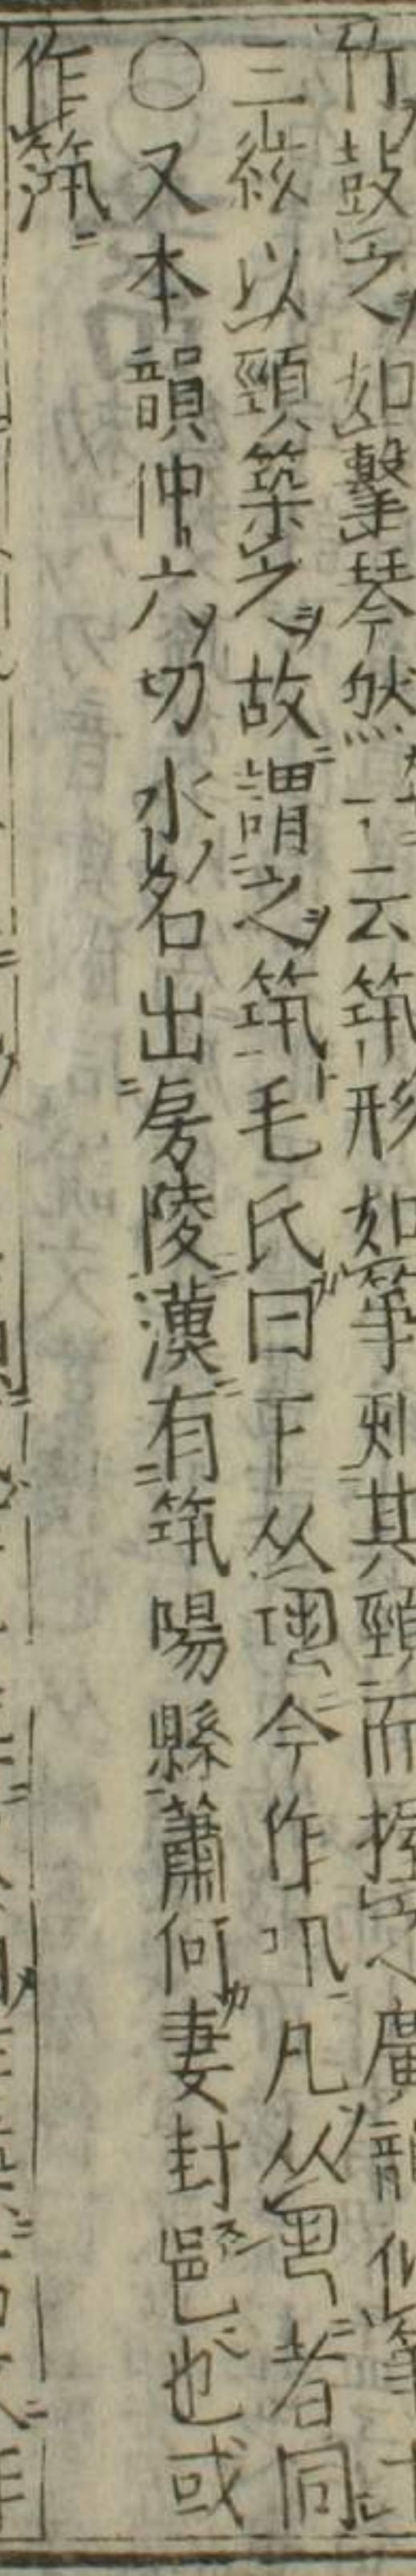 竹鼓之如擊琴然一云筑形如箏刻其頸而握之廣韻似箏十
三絃以頸築之故謂之筑毛氏曰下从今作卂凡从者同
〇又本韻仲六切水名出房陵漢有筑陽縣蕭何妻封邑也或
作筑